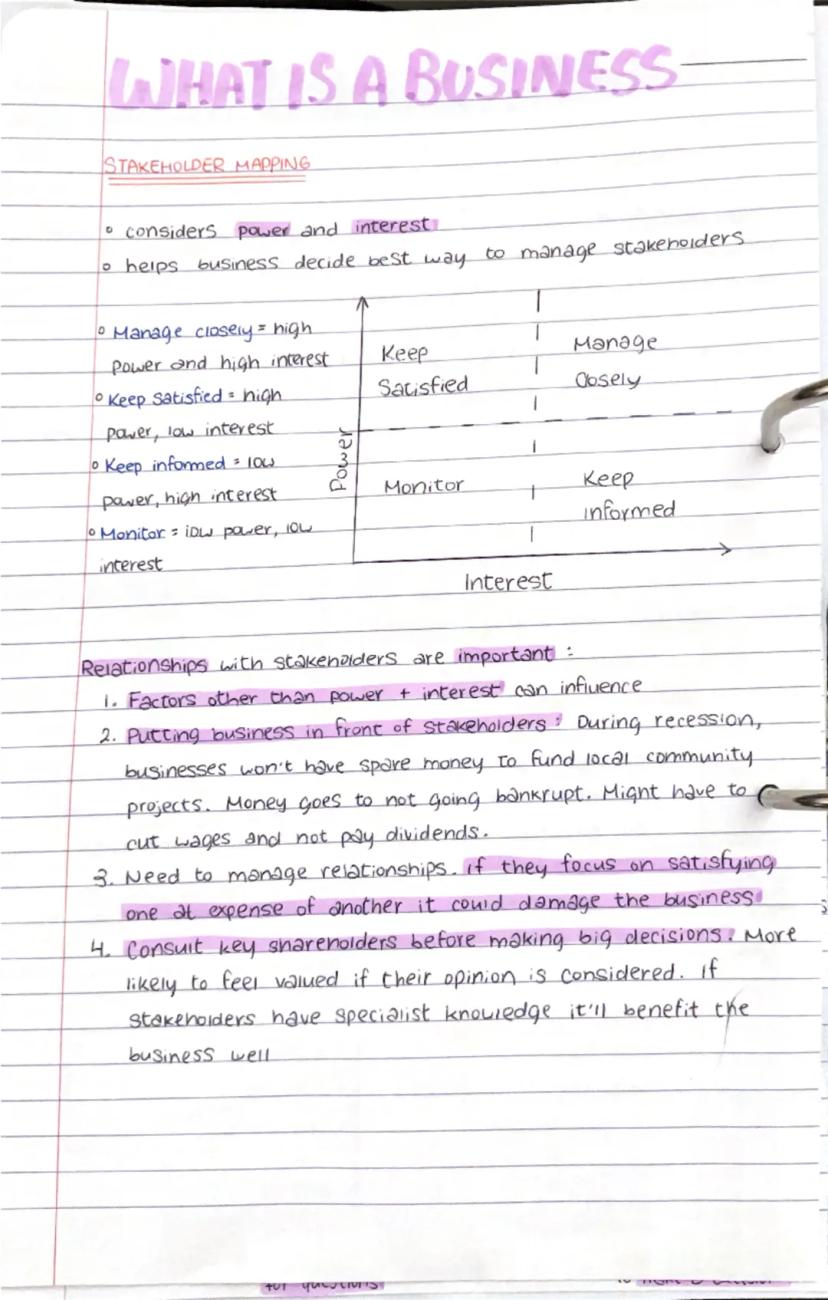 WHAT IS A BUSINESS
STAKEHOLDER MAPPING
° considers power and interest
° helps business decide best way to manage stakeholders
° Manage closely = high
power and high interest
° Keep satisfied = high
power, low interest
° Keep informed = low
power, high interest
° Monitor = low power, low
interest
Power
Keep
Satisfied
Manage
Closely
Monitor
Keep
informed
Interest
Relationships with stakeholders are important :
1. Factors other than power + interest can influence
2. Putting business in front of stakeholders : During recession,
businesses won't have spare money to fund local community
projects. Money goes to not going bankrupt. Might have to
cut wages and not pay dividends.
3. Need to manage relationships. if they focus on satisfying
one at expense of another it could damage the business
4. Consult key shareholders before making big decisions. More
likely to feel valued if their opinion is considered. If
stakeholders have specialist knowledge it'll benefit the
business well
for questions